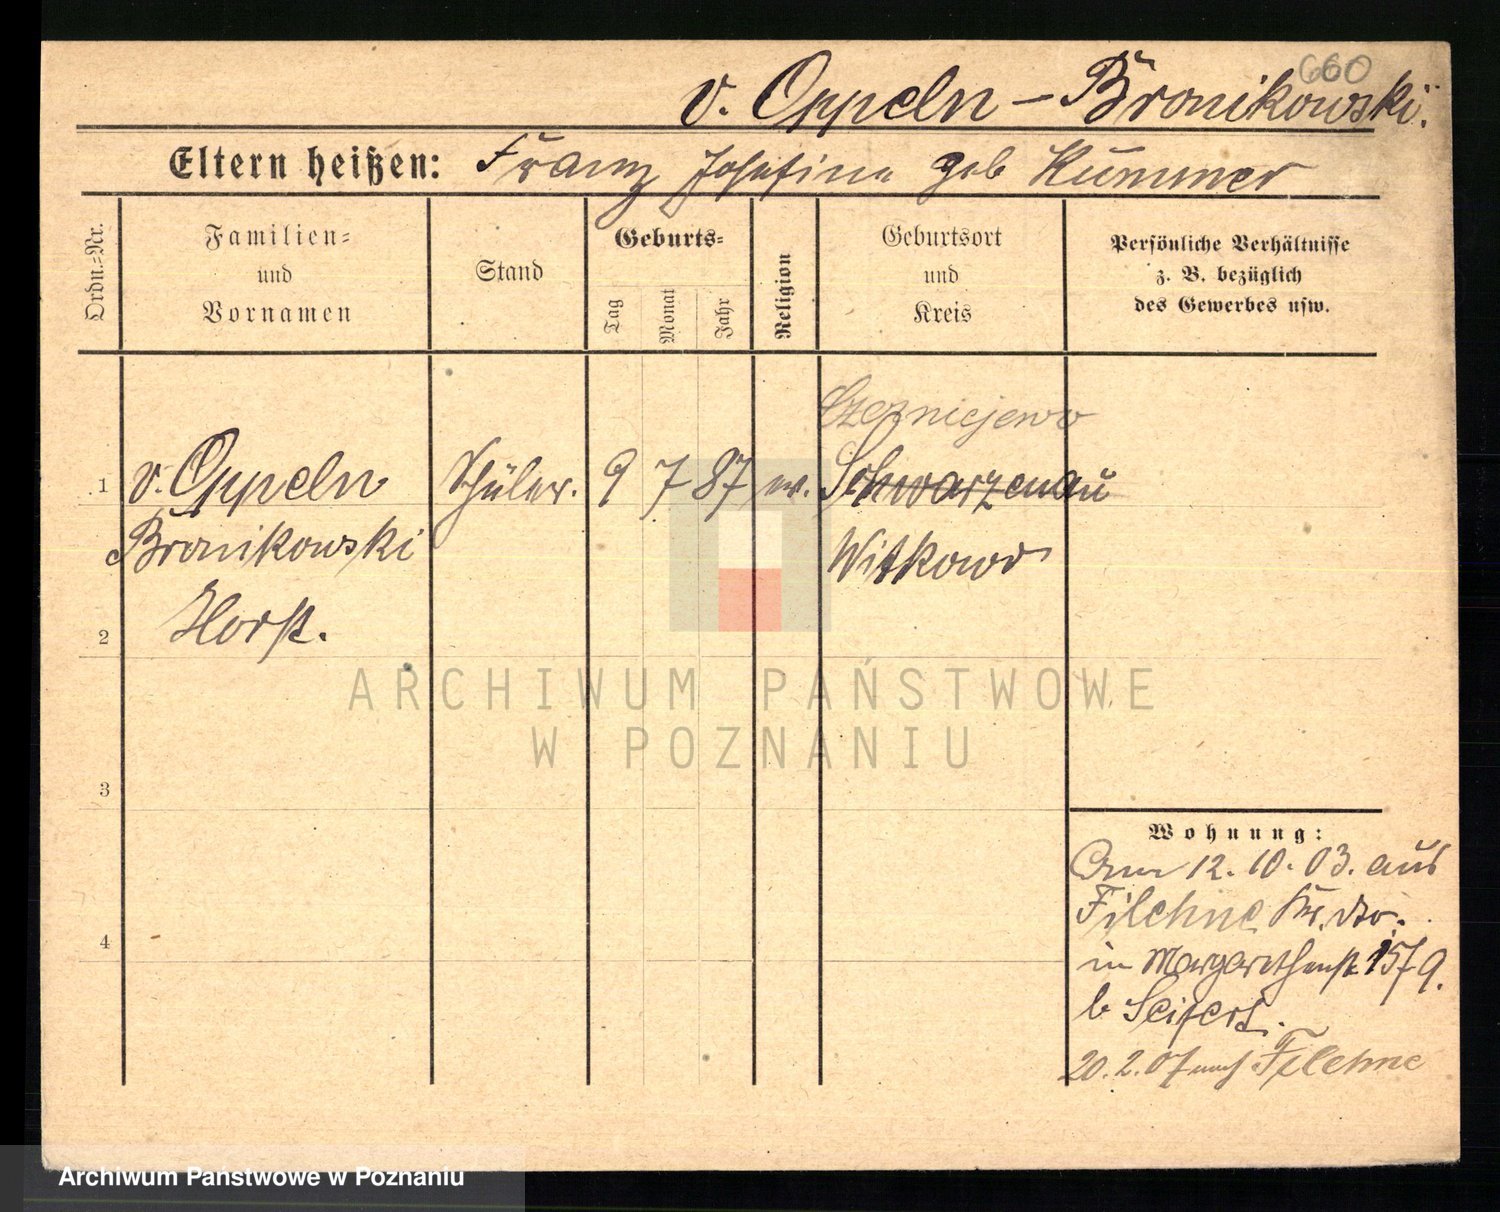 660
v. Oppeln-Bronikowski.
Eltern heißen: Franz Josefine geb Kummer
Ordn.-Nr.
Familien-
und
Vornamen
Stand
Geburts-
Tag
Monat
Jahr
Religion
Geburtsort
und
Kreis
Persönliche Verhältnisse
z. B. bezüglich
des Gewerbes usw.
Czerniejewo
1 v. Oppeln Schüler. 9 7 87 ev. Schwarzenau
Bronikowski Witkowo
2 Horst.
3
4
Wohnung:
Am 12.10.03. aus
Filehne Kr. dto.
in Margarethenst.
b Seifert.
20.2.07 nach Filehne
ARCHIWUM PAŃSTWOWE
W POZNANIU
Archiwum Państwowe w Poznaniu